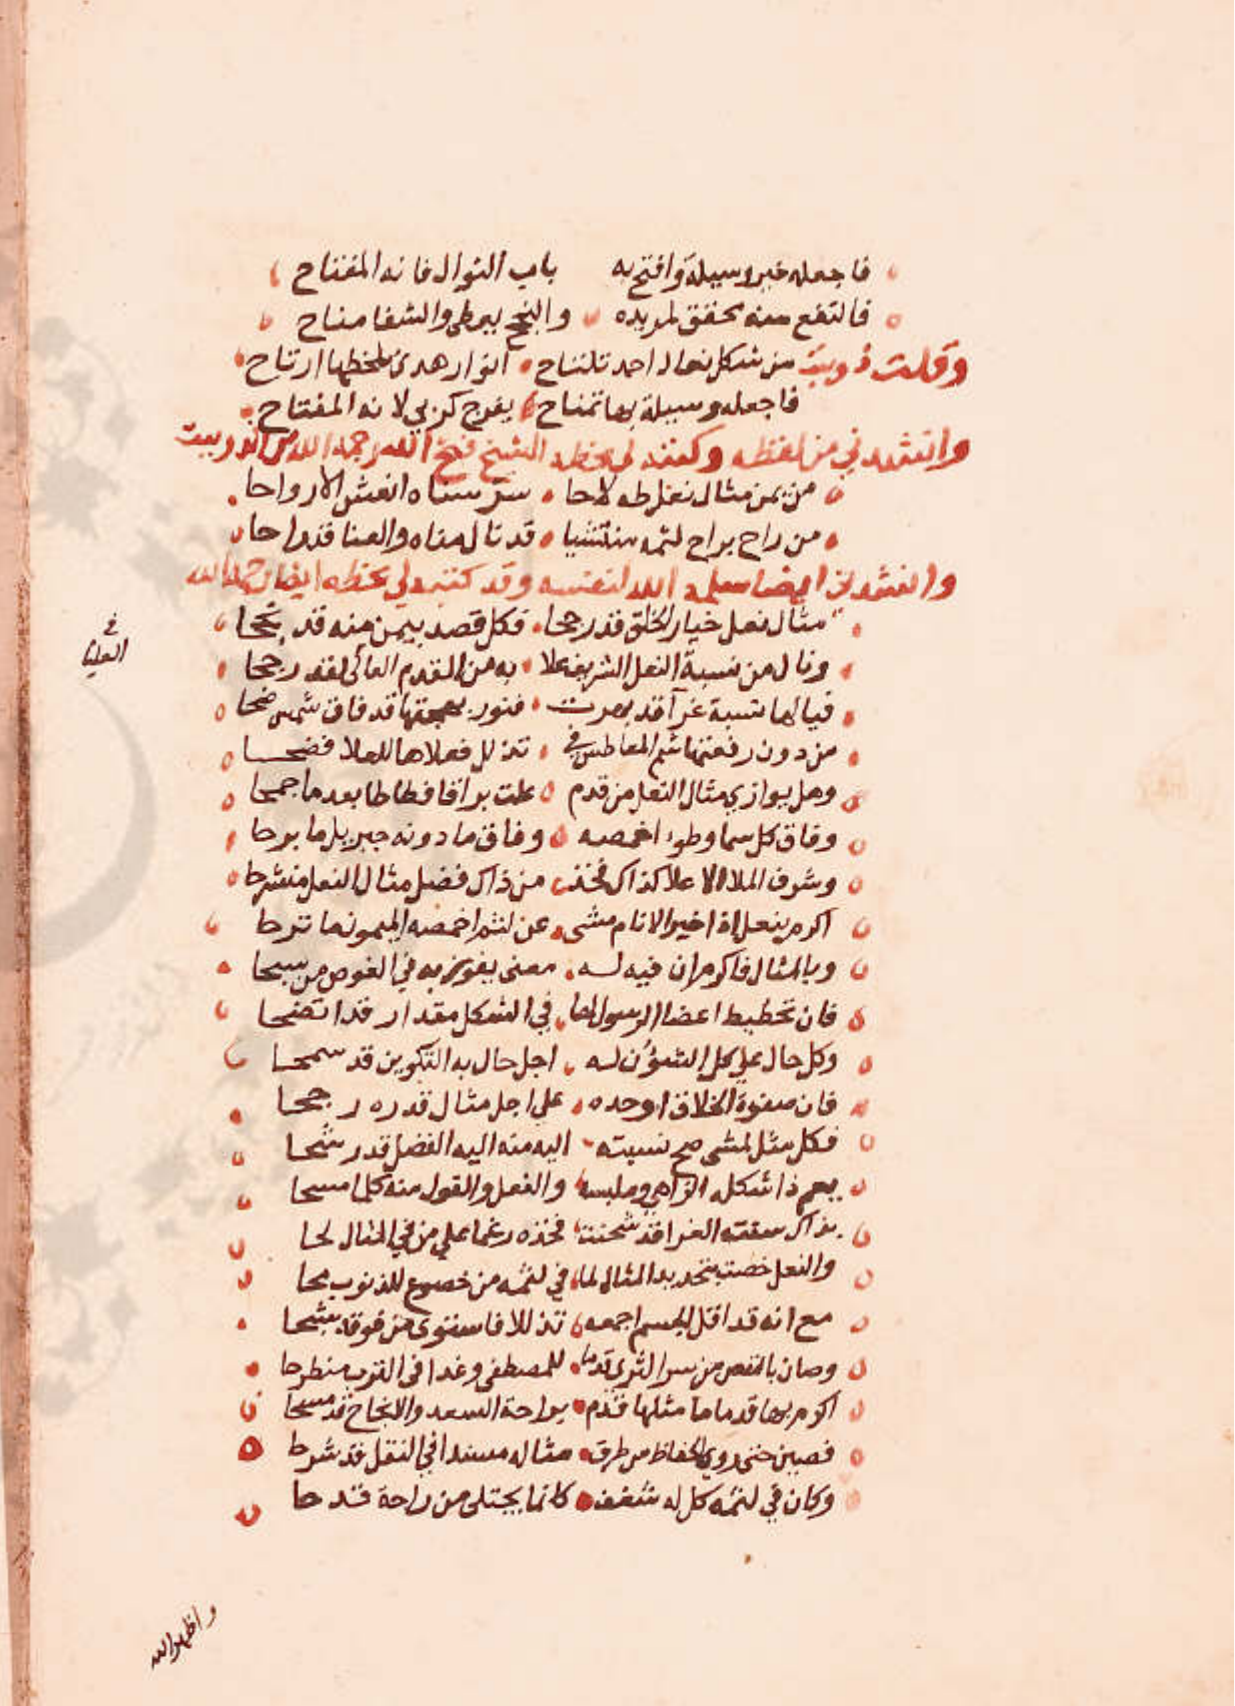 فاجعله خير وسيلة وافتح به باب النوال فانه المفتاح
فالنفع منه محقق لمريده والنجح يعطى والشفا مناح
وقلت دوبيت من شكل نعال احمد تلتاح انوار هدى لحظها ارتاح
فاجعله وسيلة بها تمتاح يفرج كربي لانه المفتاح
وانشدني من لفظه وكتبه لي بخطه الشيخ فتح الله رحمه الله من الدوبيت
من يمن مثال نعل طه لاحا سر سناه انعش الارواحا
من راح براح لثمه منتشيا قد نال مناه والعنا قد راحا
وانشدني ايضا سلمه الله لنفسه وقد كتبه لي بخطه ايضا رحمه الله
مثال نعل خيار الخلق قد رجحا فكل قصد بيمن منه قد نجحا
ونال من نسبة النعل الشريف علا به من القدم العالي لقد رجحا
في العليا
فيالها نسبة غرا قد بهرت فنور بهجتها قد فاق شمس ضحا
من دون رفعتها شم المعاطس في تذلل فعلاها للعلا فضحا
وهل يوازي مثال النعل من قدم علت براقا فطاطا بعد ما جمحا
وفاق كل سما وطؤ اخمصه وفاق ما دونه جبريل ما برحا
وشرف الملا الاعلا كذاك فخذ من ذاك فضل مثال النعل منشرحا
اكرم بنعل اذا خير الانام مشى عن لثم اخمصه الميمون ما نزحا
وبالمثال فاكرم ان فيه له معنى يفوز به في الغوص من سبحا
فان تخطيط اعضا الرسول لها في الشكل مقدار قد اتضحا
وكل حال علي كل الشؤن له اجل حال به التكوين قد سمحا
فان صفوة الخلاق اوحده علي اجل مثال قدره رجحا
فكل مثل لمشى صح نسبته اليه منه اليه الفضل قد رشحا
يعم ذا شكله الزاهي وملبسه والفعل والقول منه كلما سنحا
بذاك سنته الغرا قد شحنت فخذه رغما علي من في المثال لحا
والنعل خصت بتحديد المثال لما في لثمه من خصوع للذنوب محا
مع انه قد اقل الجسم اجمعه تذللا فاستوى من فوقه شبحا
وصان بالنص من سر الثرى قدما للمصطفى وغدا في الترب منطرحا
اكرم بها قدما ما مثلها قدم براحة السعد والانجاح قد مسحا
فصين حتى روي الحفاظ من طرق مثاله مسندا في النقل قد شرحا
وكان في لثمه كل له شغف كانما يجتلى من راحة قدحا
واظهر الله